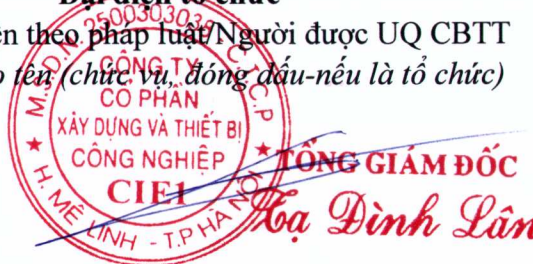 Đại diện tổ chức
ện theo pháp luật/Người được UQ CBTT
tên (chức vụ, đóng dấu-nếu là tổ chức)
M.S.D.N: 2500303030 - C.T.C.P
CÔNG TY
CỔ PHẦN
XÂY DỰNG VÀ THIẾT BỊ
CÔNG NGHIỆP
CIE1
H. MÊ LINH - T.P HÀ NỘI
TỔNG GIÁM ĐỐC
Tạ Đình Lân